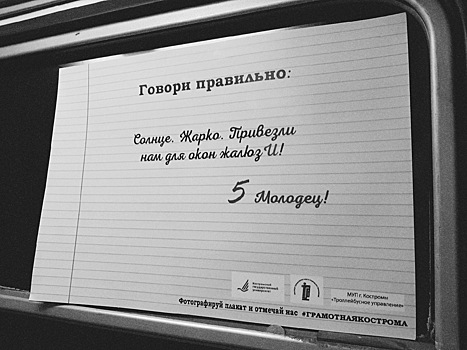 Говори правильно:
Солнце. Жарко. Привезли
нам для окон жалюзИ!
5 Молодец!
Костромской
государственный
университет
МУП г. Костромы
«Троллейбусное управление»
Фотографируй плакат и отмечай нас #ГРАМОТНАЯКОСТРОМА